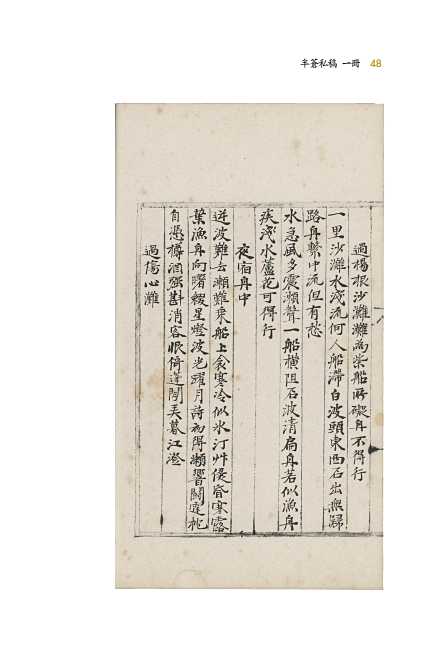 半蒼私稿 一冊 48
過楊根沙灘灘為柴船所礙舟不得行
一里沙灘水淺流何人船滯白波頭東西石出無歸
路舟繫中流但有愁
水急風多震瀬聲一船橫阻石波清扁舟若似漁舟
疾淺水蘆花可得行
夜宿舟中
逆波難去瀬難乘船上衾寒冷似氷汀草侵昏寒露
葉漁舟向曙輟星燈波光躍月詩初得瀬響鬪
自憑樽酒強斟消客恨倚蓬閒美暮江澄
過傷心灘